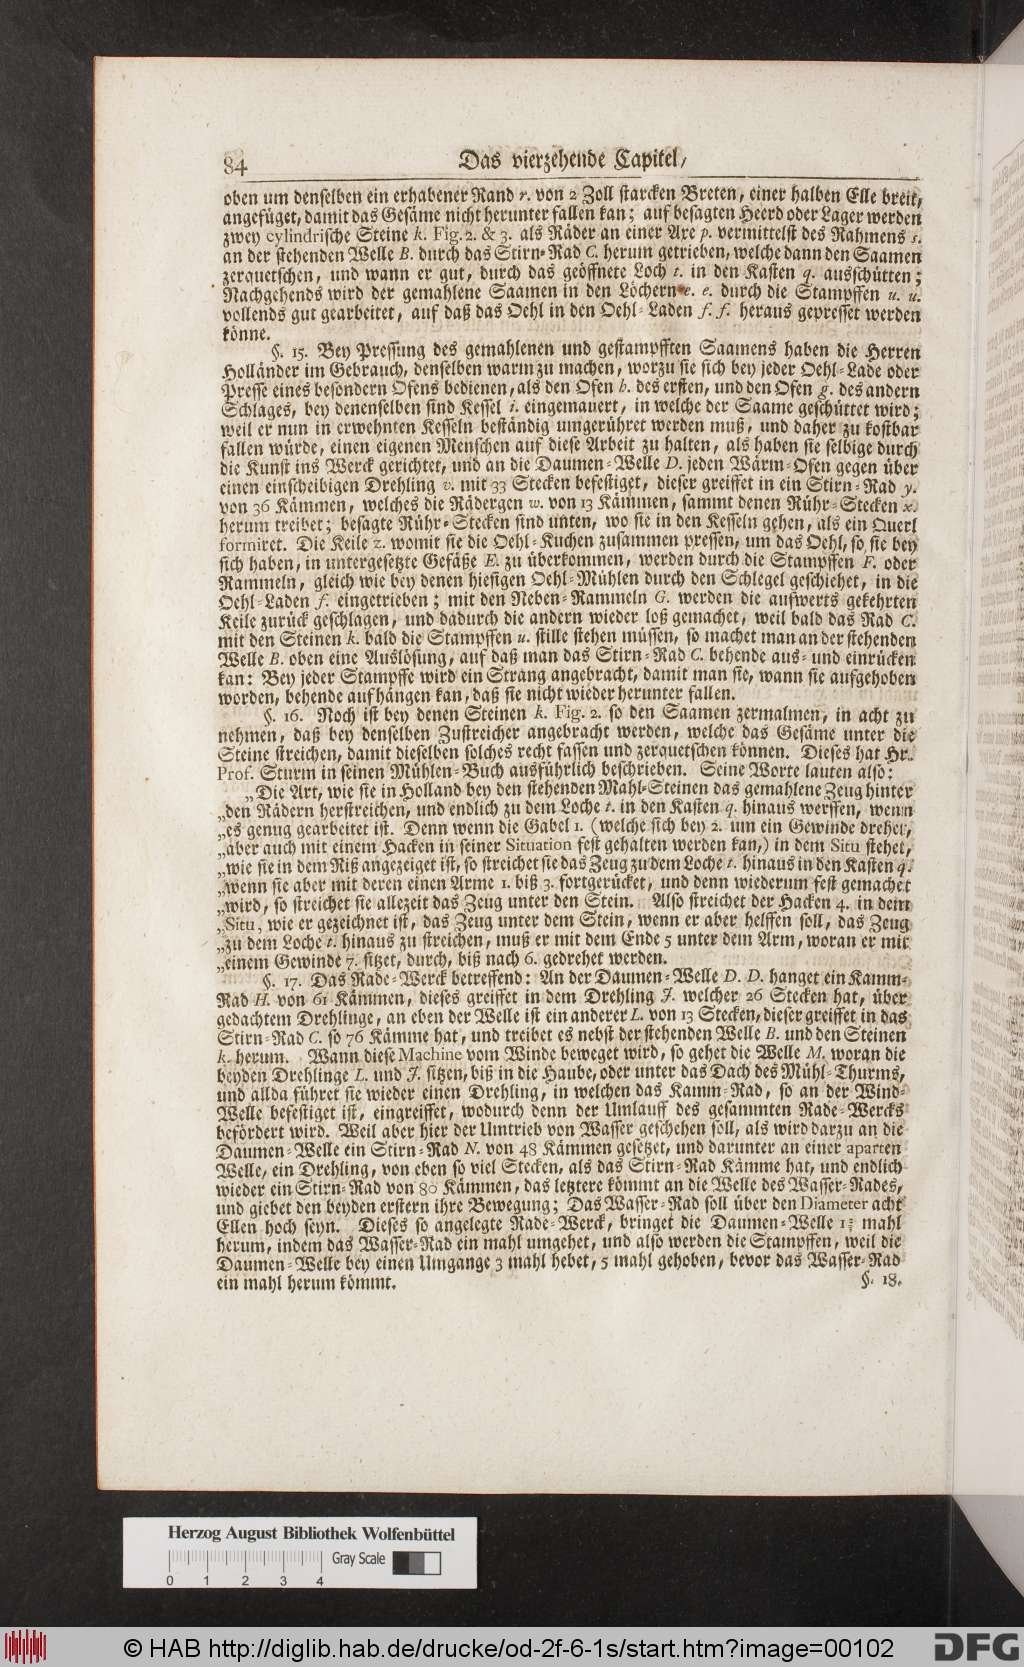 84 Das vierzehende Capitel,
oben um denselben ein erhabener Rand r. von 2 Zoll starcken Breten, einer halben Elle breit,
angefüget, damit das Gesäme nicht herunter fallen kan; auf besagten Heerd oder Lager werden
zwey cylindrische Steine k. Fig. 2. & 3. als Räder an einer Axe p. vermittelst des Rahmens s.
an der stehenden Welle B. durch das Stirn-Rad C. herum getrieben, welche dann den Saamen
zerquetschen, und wann er gut, durch das geöffnete Loch t. in den Kasten q. ausschütten;
Nachgehends wird der gemahlene Saamen in den Löchern e. e. durch die Stampffen u. u.
vollends gut gearbeitet, auf daß das Oehl in den Oehl-Laden f. f. heraus gepresset werden
könne.
§. 15. Bey Pressung des gemahlenen und gestampfften Saamens haben die Herren
Holländer im Gebrauch, denselben warm zu machen, worzu sie sich bey jeder Oehl-Lade oder
Presse eines besondern Ofens bedienen, als den Ofen h. des ersten, und den Ofen g. des andern
Schlages, bey denenselben sind Kessel i. eingemauert, in welche der Saame geschüttet wird;
weil er nun in erwehnten Kesseln beständig umgerühret werden muß, und daher zu kostbar
fallen würde, einen eigenen Menschen auf diese Arbeit zu halten, als haben sie selbige durch
die Kunst ins Werck gerichtet, und an die Daumen-Welle D. jeden Wärm-Ofen gegen über
einen einscheibigen Drehling v. mit 33 Stecken befestiget, dieser greiffet in ein Stirn-Rad y.
von 36 Kämmen, welches die Rädergen w. von 13 Kämmen, sammt denen Rühr-Stecken x.
herum treibet; besagte Rühr-Stecken sind unten, wo sie in den Kesseln gehen, als ein Querl
formiret. Die Keile z. womit sie die Oehl-Kuchen zusammen pressen, um das Oehl, so sie bey
sich haben, in untergesetzte Gefäße E. zu überkommen, werden durch die Stampffen F. oder
Rammeln, gleich wie bey denen hiesigen Oehl-Mühlen durch den Schlegel geschiehet, in die
Oehl-Laden f. eingetrieben; mit den Neben-Rammeln G. werden die aufwerts gekehrten
Keile zurück geschlagen, und dadurch die andern wieder loß gemachet, weil bald das Rad C.
mit den Steinen k. bald die Stampffen u. stille stehen müssen, so machet man an der stehenden
Welle B. oben eine Auslösung, auf daß man das Stirn-Rad C. behende aus- und einrücken
kan: Bey jeder Stampffe wird ein Strang angebracht, damit man sie, wann sie aufgehoben
worden, behende aufhängen kan, daß sie nicht wieder herunter fallen.
§. 16. Noch ist bey denen Steinen k. Fig. 2. so den Saamen zermalmen, in acht zu
nehmen, daß bey denselben Zustreicher angebracht werden, welche das Gesäme unter die
Steine streichen, damit dieselben solches recht fassen und zerquetschen können. Dieses hat Hr.
Prof. Sturm in seinen Mühlen-Buch ausführlich beschrieben. Seine Worte lauten also:
„Die Art, wie sie in Holland bey den stehenden Mahl-Steinen das gemahlene Zeug hinter
„den Rädern herstreichen, und endlich zu dem Loche t. in den Kasten q. hinaus werffen, wenn
„es genug gearbeitet ist. Denn wenn die Gabel 1. (welche sich bey 2. um ein Gewinde drehet,
„aber auch mit einem Hacken in seiner Situation fest gehalten werden kan,) in dem Situ stehet,
„wie sie in dem Riß angezeiget ist, so streichet sie das Zeug zu dem Loche t. hinaus in den Kasten q.
„wenn sie aber mit deren einen Arme 1. biß 3. fortgerücket, und denn wiederum fest gemachet
„wird, so streichet sie allezeit das Zeug unter den Stein. Also streichet der Hacken 4. in dem
„Situ, wie er gezeichnet ist, das Zeug unter dem Stein, wenn er aber helffen soll, das Zeug
„zu dem Loche t. hinaus zu streichen, muß er mit dem Ende 5 unter dem Arm, woran er mit
„einem Gewinde 7. sitzet, durch, biß nach 6. gedrehet werden.
§. 17. Das Rade-Werck betreffend: An der Daumen-Welle D. D. hanget ein Kamm-
Rad H. von 61 Kämmen, dieses greiffet in dem Drehling J. welcher 26 Stecken hat, über
gedachtem Drehlinge, an eben der Welle ist ein anderer L. von 13 Stecken, dieser greiffet in das
Stirn-Rad C. so 76 Kämme hat, und treibet es nebst der stehenden Welle B. und den Steinen
k. herum. Wann diese Machine vom Winde beweget wird, so gehet die Welle M. woran die
beyden Drehlinge L. und J. sitzen, biß in die Haube, oder unter das Dach des Mühl-Thurms,
und allda führet sie wieder einen Drehling, in welchen das Kamm-Rad, so an der Wind-
Welle befestiget ist, eingreiffet, wodurch denn der Umlauff des gesammten Rade-Wercks
befördert wird. Weil aber hier der Umtrieb von Wasser geschehen soll, als wird darzu an die
Daumen-Welle ein Stirn-Rad N. von 48 Kämmen gesetzet, und darunter an einer aparten
Welle, ein Drehling, von eben so viel Stecken, als das Stirn-Rad Kämme hat, und endlich
wieder ein Stirn-Rad von 80 Kämmen, das letztere kömmt an die Welle des Wasser-Rades,
und giebet den beyden erstern ihre Bewegung; Das Wasser-Rad soll über den Diameter acht
Ellen hoch seyn. Dieses so angelegte Rade-Werck, bringet die Daumen-Welle 1⅔ mahl
herum, indem das Wasser-Rad ein mahl umgehet, und also werden die Stampffen, weil die
Daumen-Welle bey einen Umgange 3 mahl hebet, 5 mahl gehoben, bevor das Wasser-Rad
ein mahl herum kömmt. §. 18.
Herzog August Bibliothek Wolfenbüttel
Gray Scale
0 1 2 3 4
© HAB http://diglib.hab.de/drucke/od-2f-6-1s/start.htm?image=00102
DFG